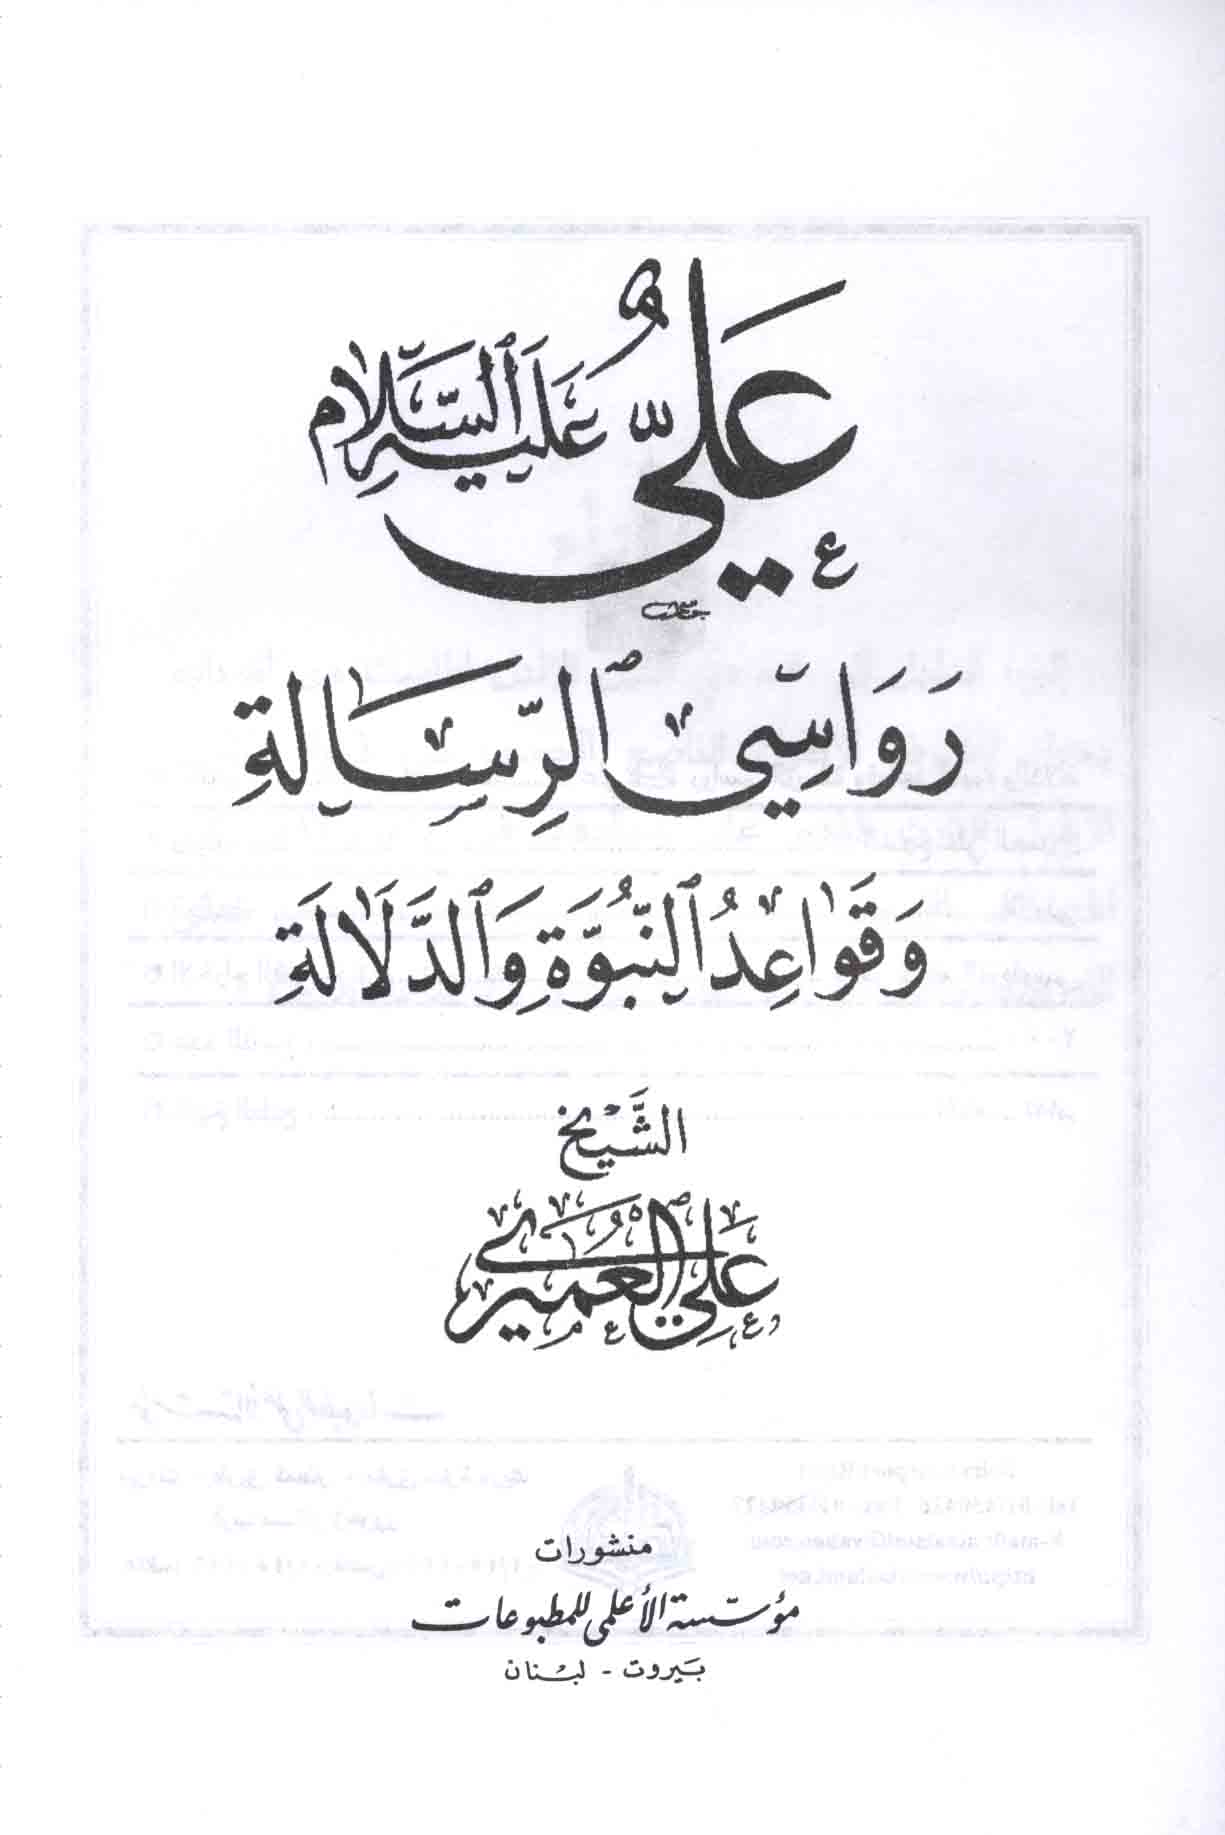 عَلِيٌّ عَلَيْهِ ٱلسَّلَام
رَوَاسِي ٱلرِّسَالَةِ
وَقَوَاعِدُ ٱلنُّبُوَّةِ وَٱلدَّلَالَةِ
الشَّيْخ
عَلِي ٱلْعُمَيْرِي
منشورات
مؤسّسة الأعلمي للمطبوعات
بَيروت - لبْنان